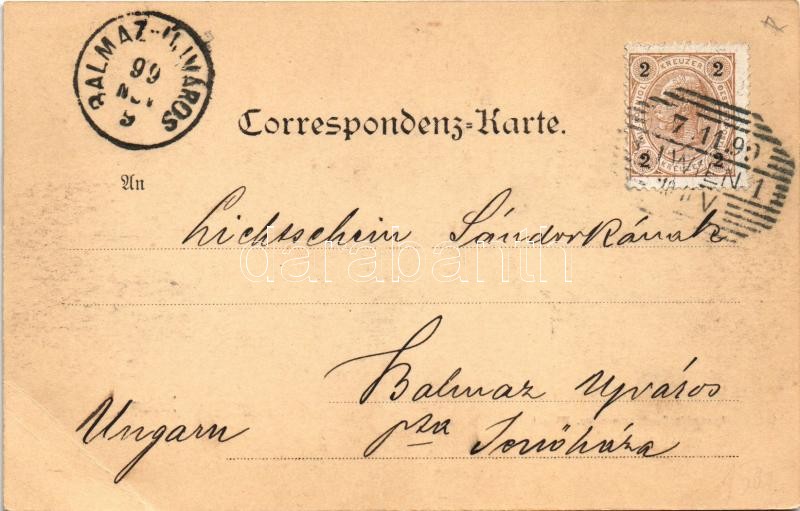 BALMAZ-ÚJVÁROS
99
NOV
8
2 KREUZER 2
2 KREUZER 2
7 11.99
WIEN 1
Correspondenz-Karte.
An
Lichtschein Sándorkának
Balmaz Ujváros
Ungarn
pta Jenőháza
darabanth